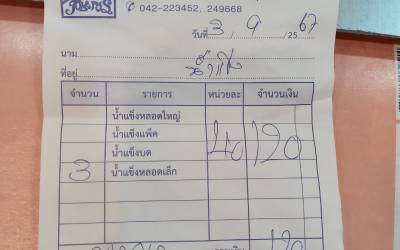 ✆ 042-223452, 249668
วันที่ 3 / 9 / 2567
นาม
ที่อยู่ น้ำแข็ง
จำนวน รายการ หน่วยละ จำนวนเงิน
น้ำแข็งหลอดใหญ่
น้ำแข็งแพ็ค 40 120
น้ำแข็งบด
3 น้ำแข็งหลอดเล็ก
120